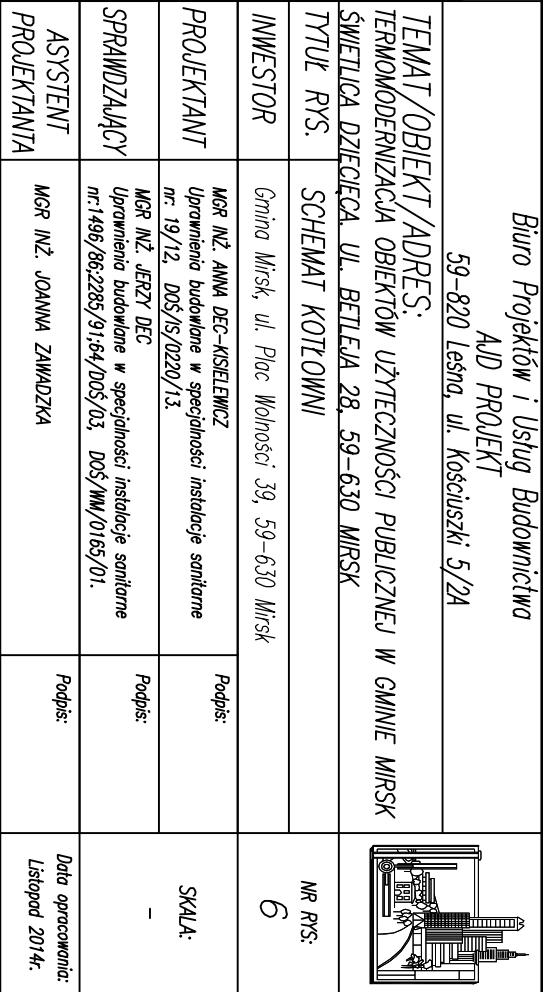 Biuro Projektów i Usług Budownictwa
AJD PROJEKT
59-820 Leśna, ul. Kościuszki 5/2A
TEMAT/OBIEKT/ADRES:
TERMOMODERNIZACJA OBIEKTÓW UŻYTECZNOŚCI PUBLICZNEJ W GMINIE MIRSK
ŚWIETLICA DZIECIĘCA. UL. BETLEJA 28, 59-630 MIRSK
TYTUŁ RYS.
SCHEMAT KOTŁOWNI
NR RYS:
6
INWESTOR
Gmina Mirsk, ul. Plac Wolności 39, 59-630 Mirsk
PROJEKTANT
MGR INŻ. ANNA DEC-KISIELEWICZ
Uprawnienia budowlane w specjalności instalacje sanitarne
nr. 19/12, DOŚ/IS/0220/13.
Podpis:
SKALA:
-
SPRAWDZAJĄCY
MGR INŻ. JERZY DEC
Uprawnienia budowlane w specjalności instalacje sanitarne
nr.1496/86;2285/91;64/DOŚ/03, DOŚ/WM/0165/01.
Podpis:
ASYSTENT
PROJEKTANTA
MGR INŻ. JOANNA ZAWADZKA
Podpis:
Data opracowania:
Listopad 2014r.